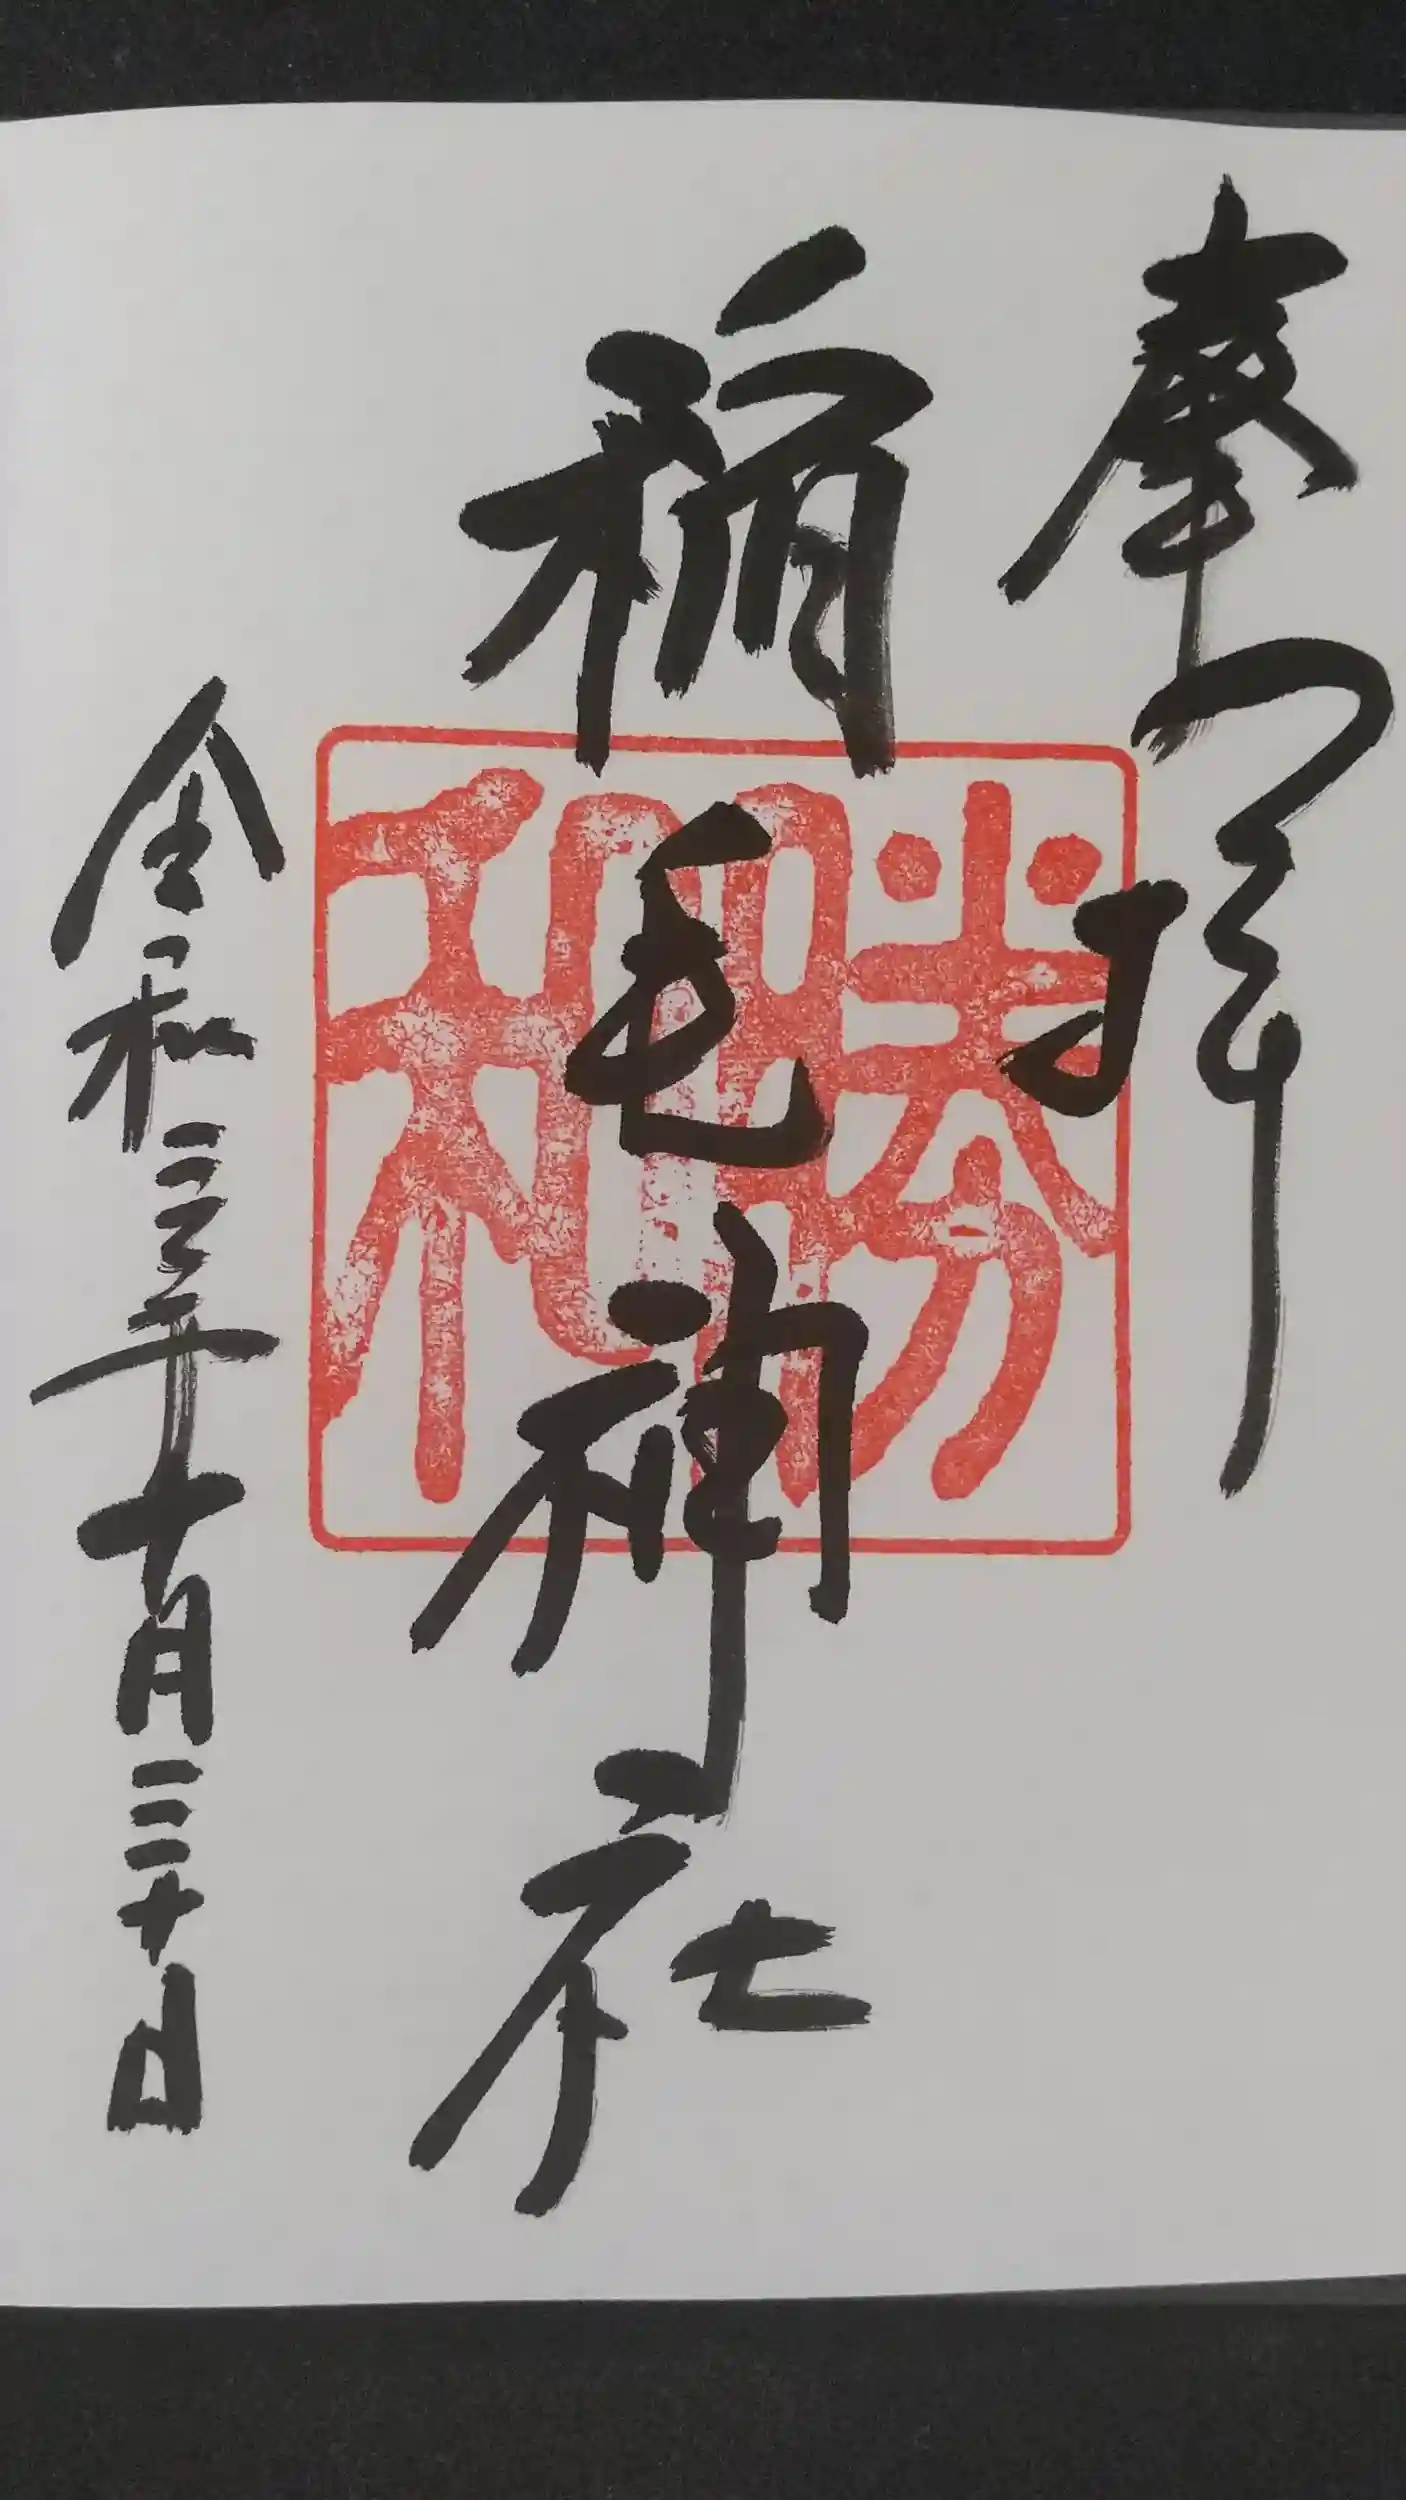 奉拝
稲毛神社
令和三年十月三十日